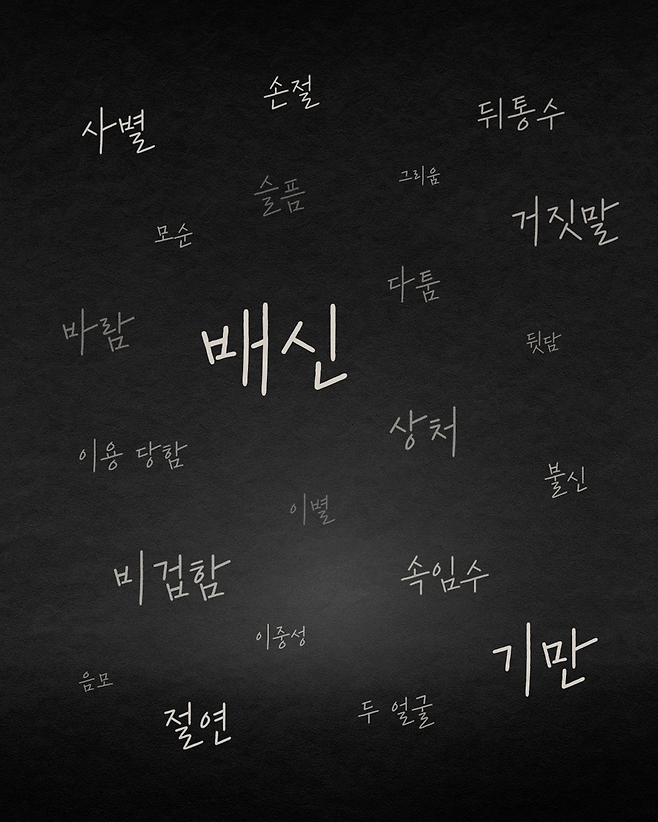 손절
사별
뒤통수
그리움
슬픔
거짓말
모순
다툼
바람
배신
뒷담
상처
이용 당함
불신
이별
비겁함
속임수
이중성
기만
음모
절연
두 얼굴